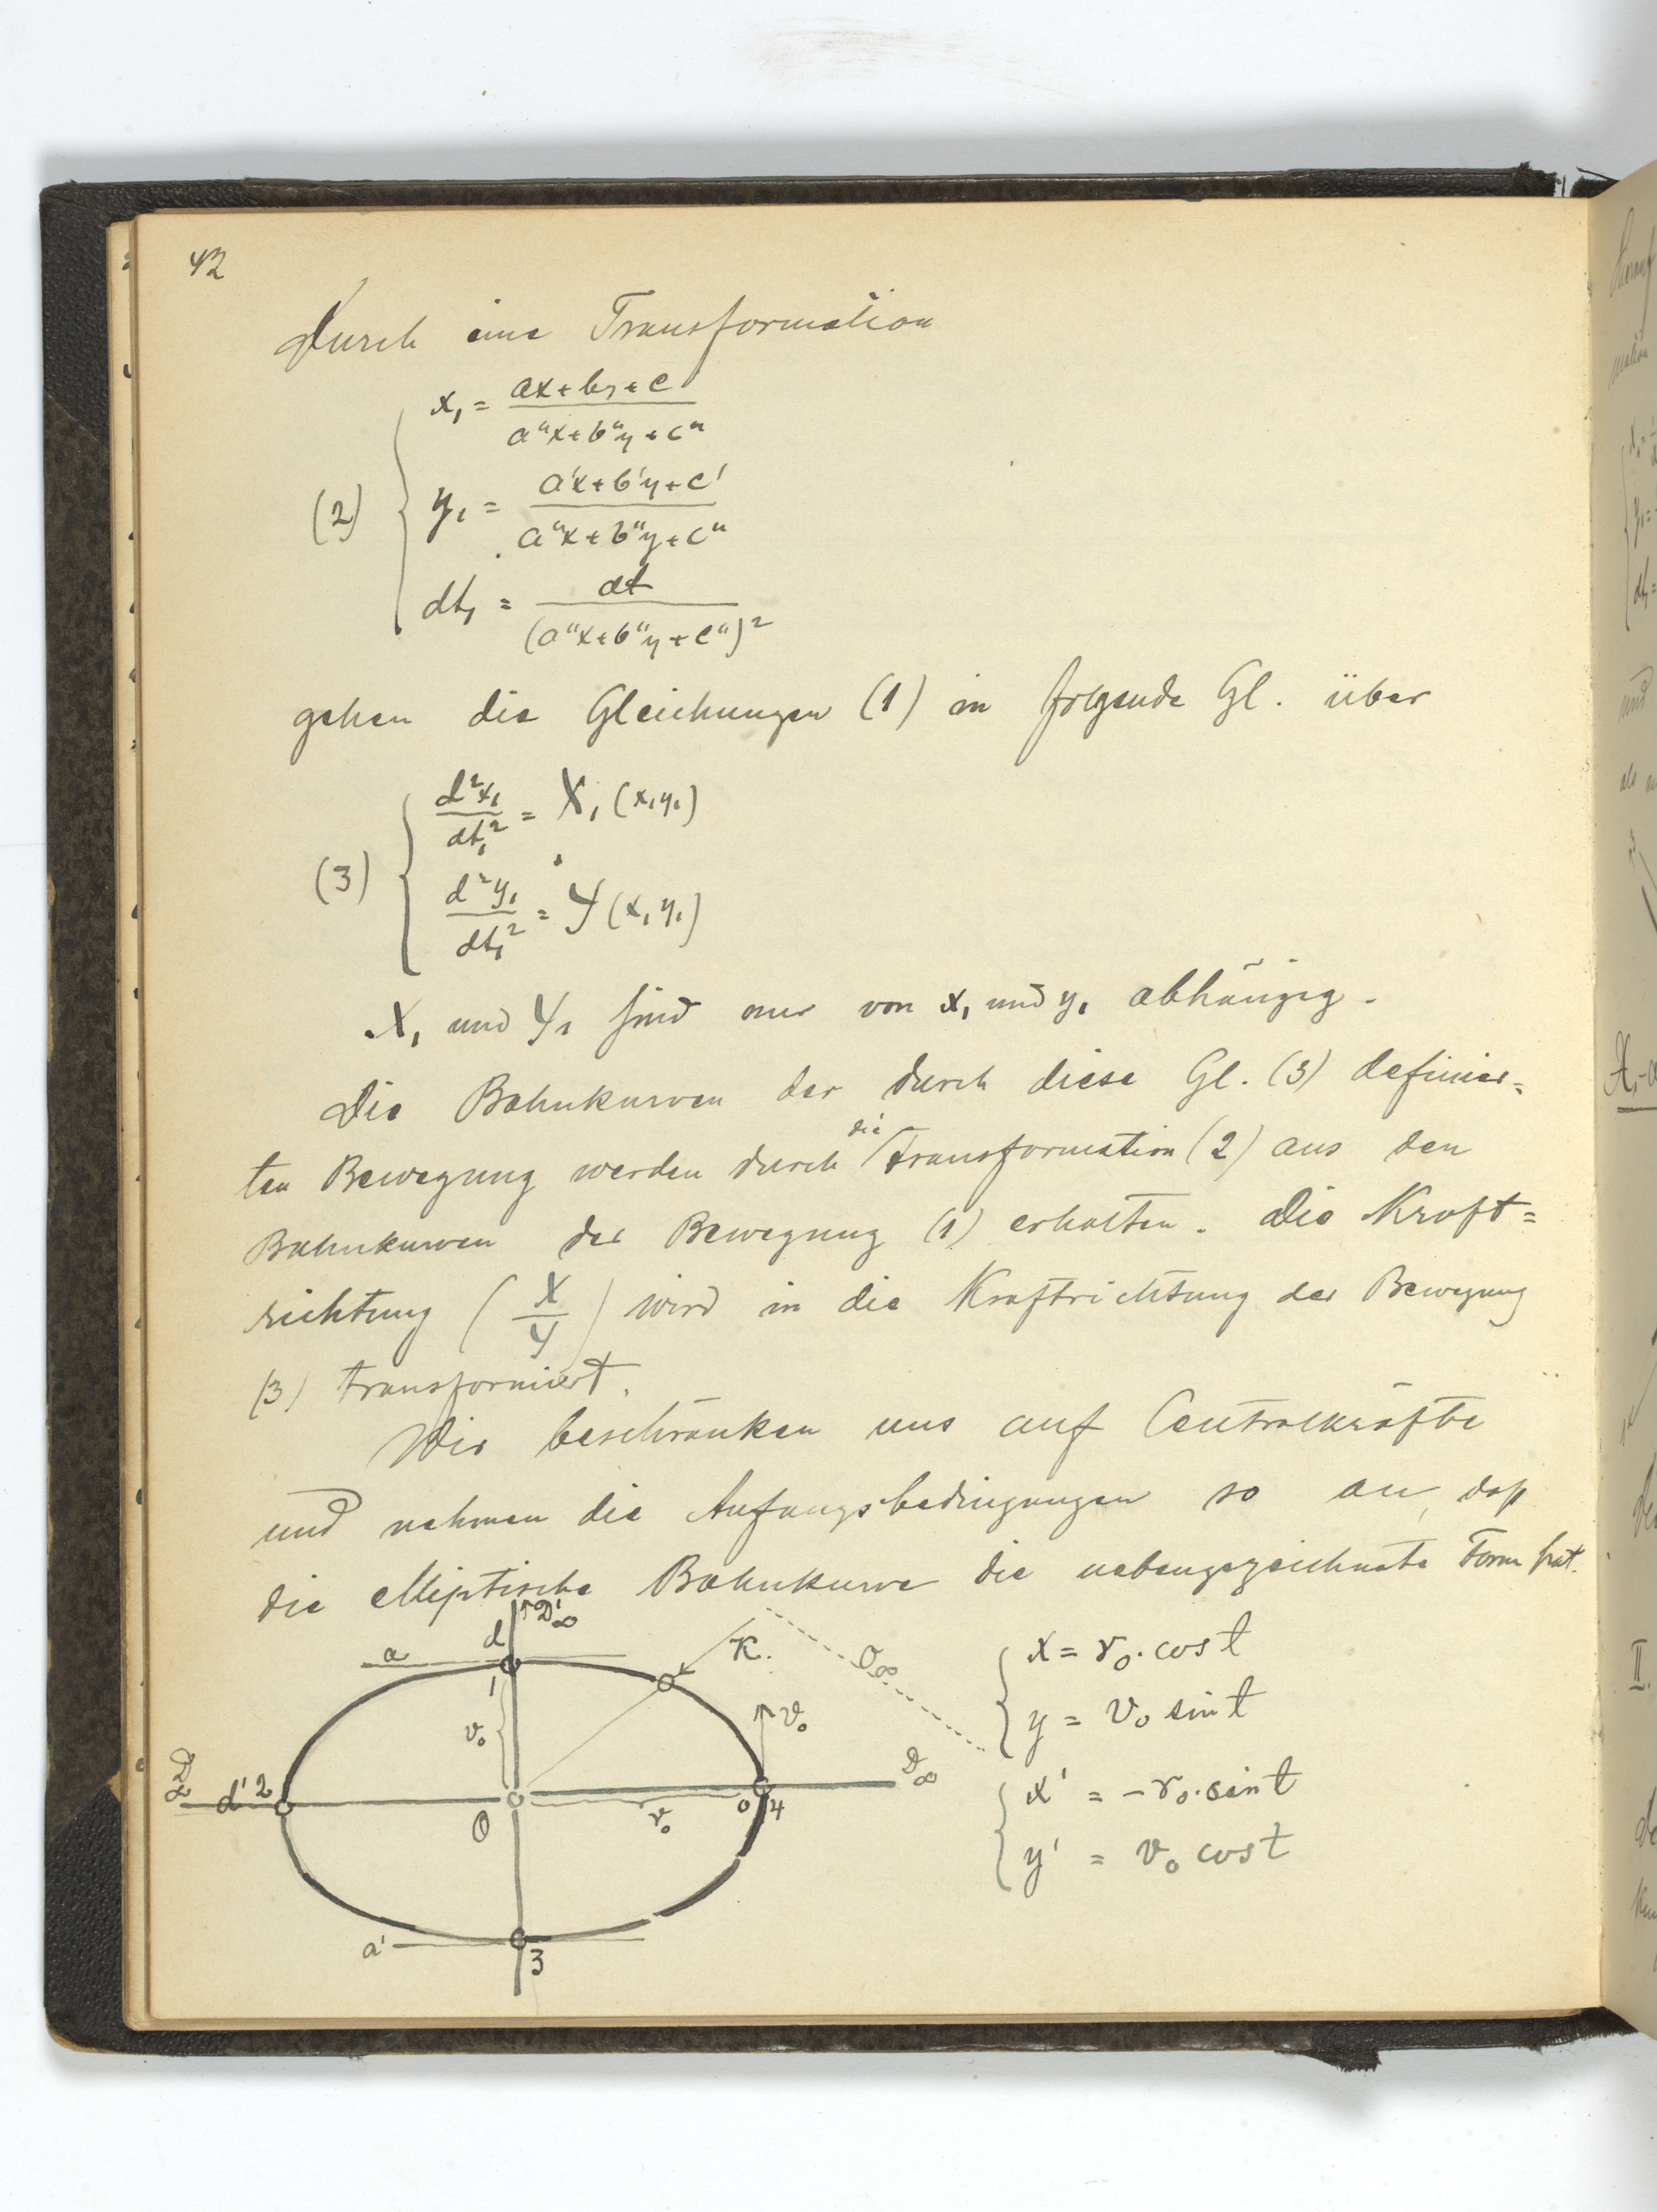 42
Durch eine Transformation
x₁ = (ax+by+c)/(a"x+b"y+c")
(2) y₁ = (a'x+b'y+c')/(a"x+b"y+c")
dt₁ = dt/(a"x+b"y+c")²
gehen die Gleichungen (1) in folgende Gl. über
d²x₁/dt₁² = X₁(x₁y₁)
(3)
d²y₁/dt₁² = Y(x₁y₁)
X₁ und Y₁ sind nur von x₁ und y₁ abhängig.
Die Bahnkurven der durch diese Gl. (3) definier=
ten Bewegung werden durch die Transformation (2) aus den
Bahnkurven der Bewegung (1) erhalten. Die Kraft=
richtung (X/Y) wird in die Kraftrichtung der Bewegung
(3) transformiert.
Wir beschränken uns auf Centralkräfte
und nehmen die Anfangsbedingungen so an, daß
die elliptische Bahnkurve die nebengezeichnete Form hat.
d D'∞
a K. O∞
1
v₀ v₀
D∞
d' 2 D∞
O v₀ 0 4
a' 3
x = r₀. cos t
y = v₀ sin t
x' = -r₀. sin t
y' = v₀ cos t